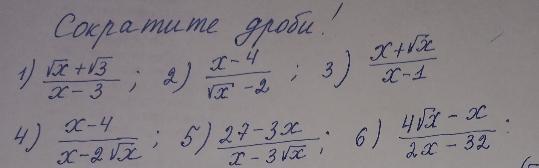 Сократите дроби!
1) (√x + √3)/(x - 3) ; 2) (x - 4)/(√x - 2) ; 3) (x + √x)/(x - 1)
4) (x - 4)/(x - 2√x) ; 5) (27 - 3x)/(x - 3√x) ; 6) (4√x - x)/(2x - 32) :